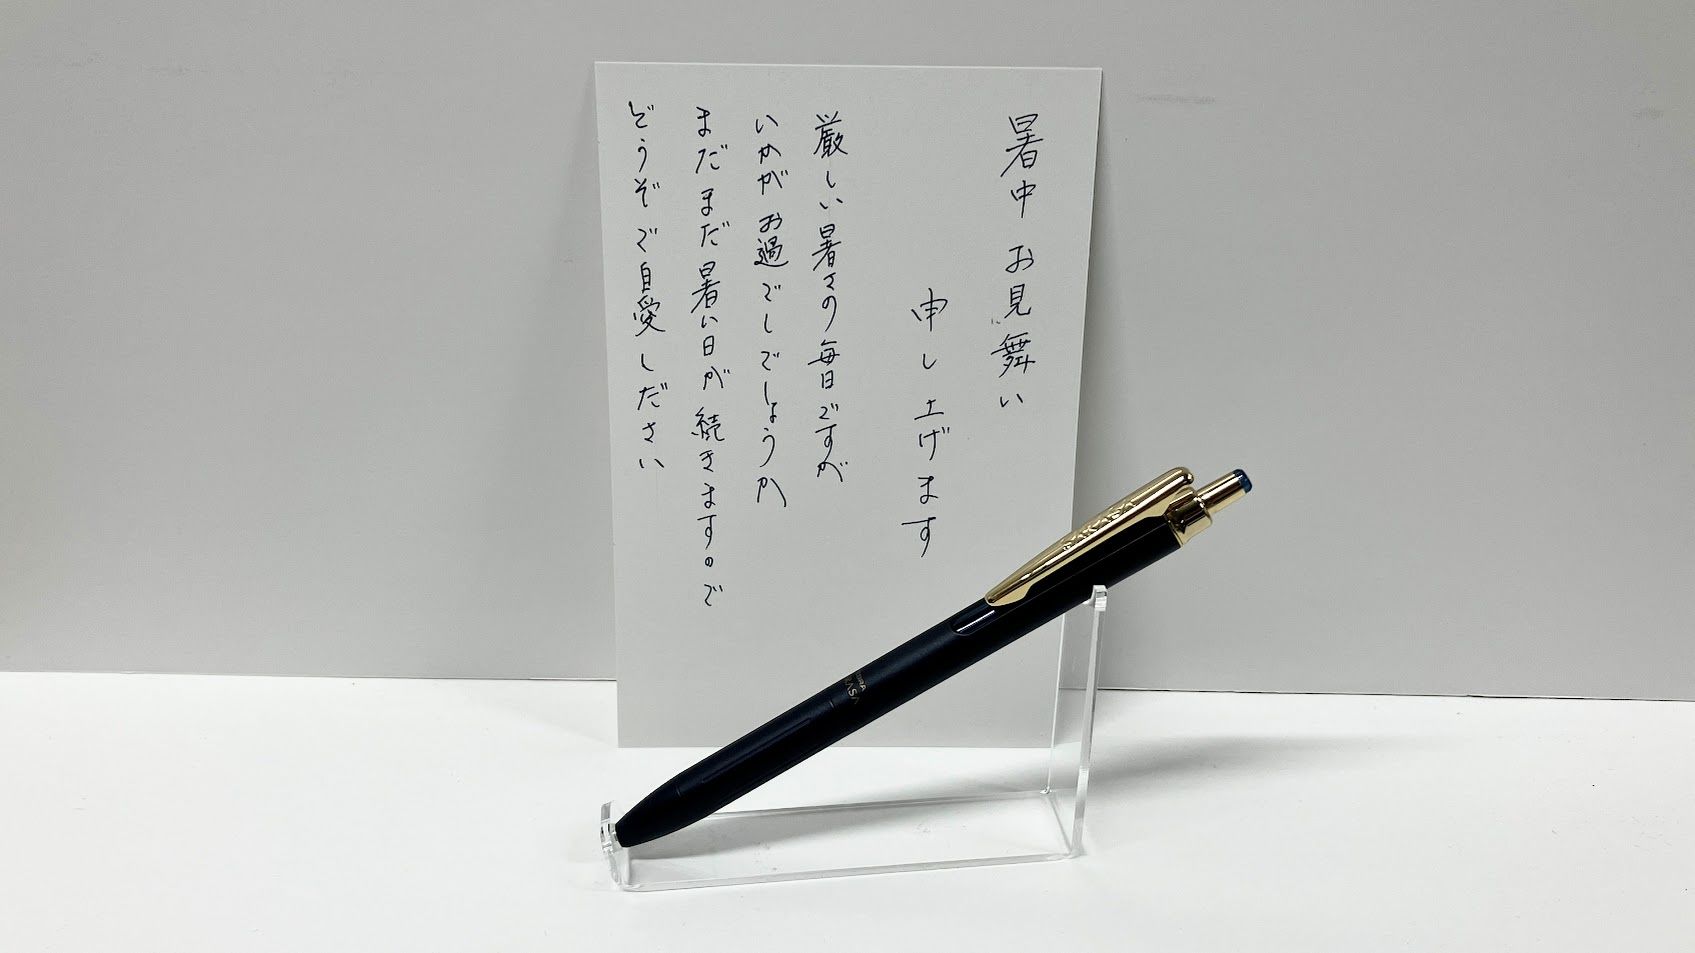 暑中お見舞い
申し上げます
厳しい暑さの毎日ですが
いかがお過ごしでしょうか
まだまだ暑い日が続きますので
どうぞご自愛ください
SARASA